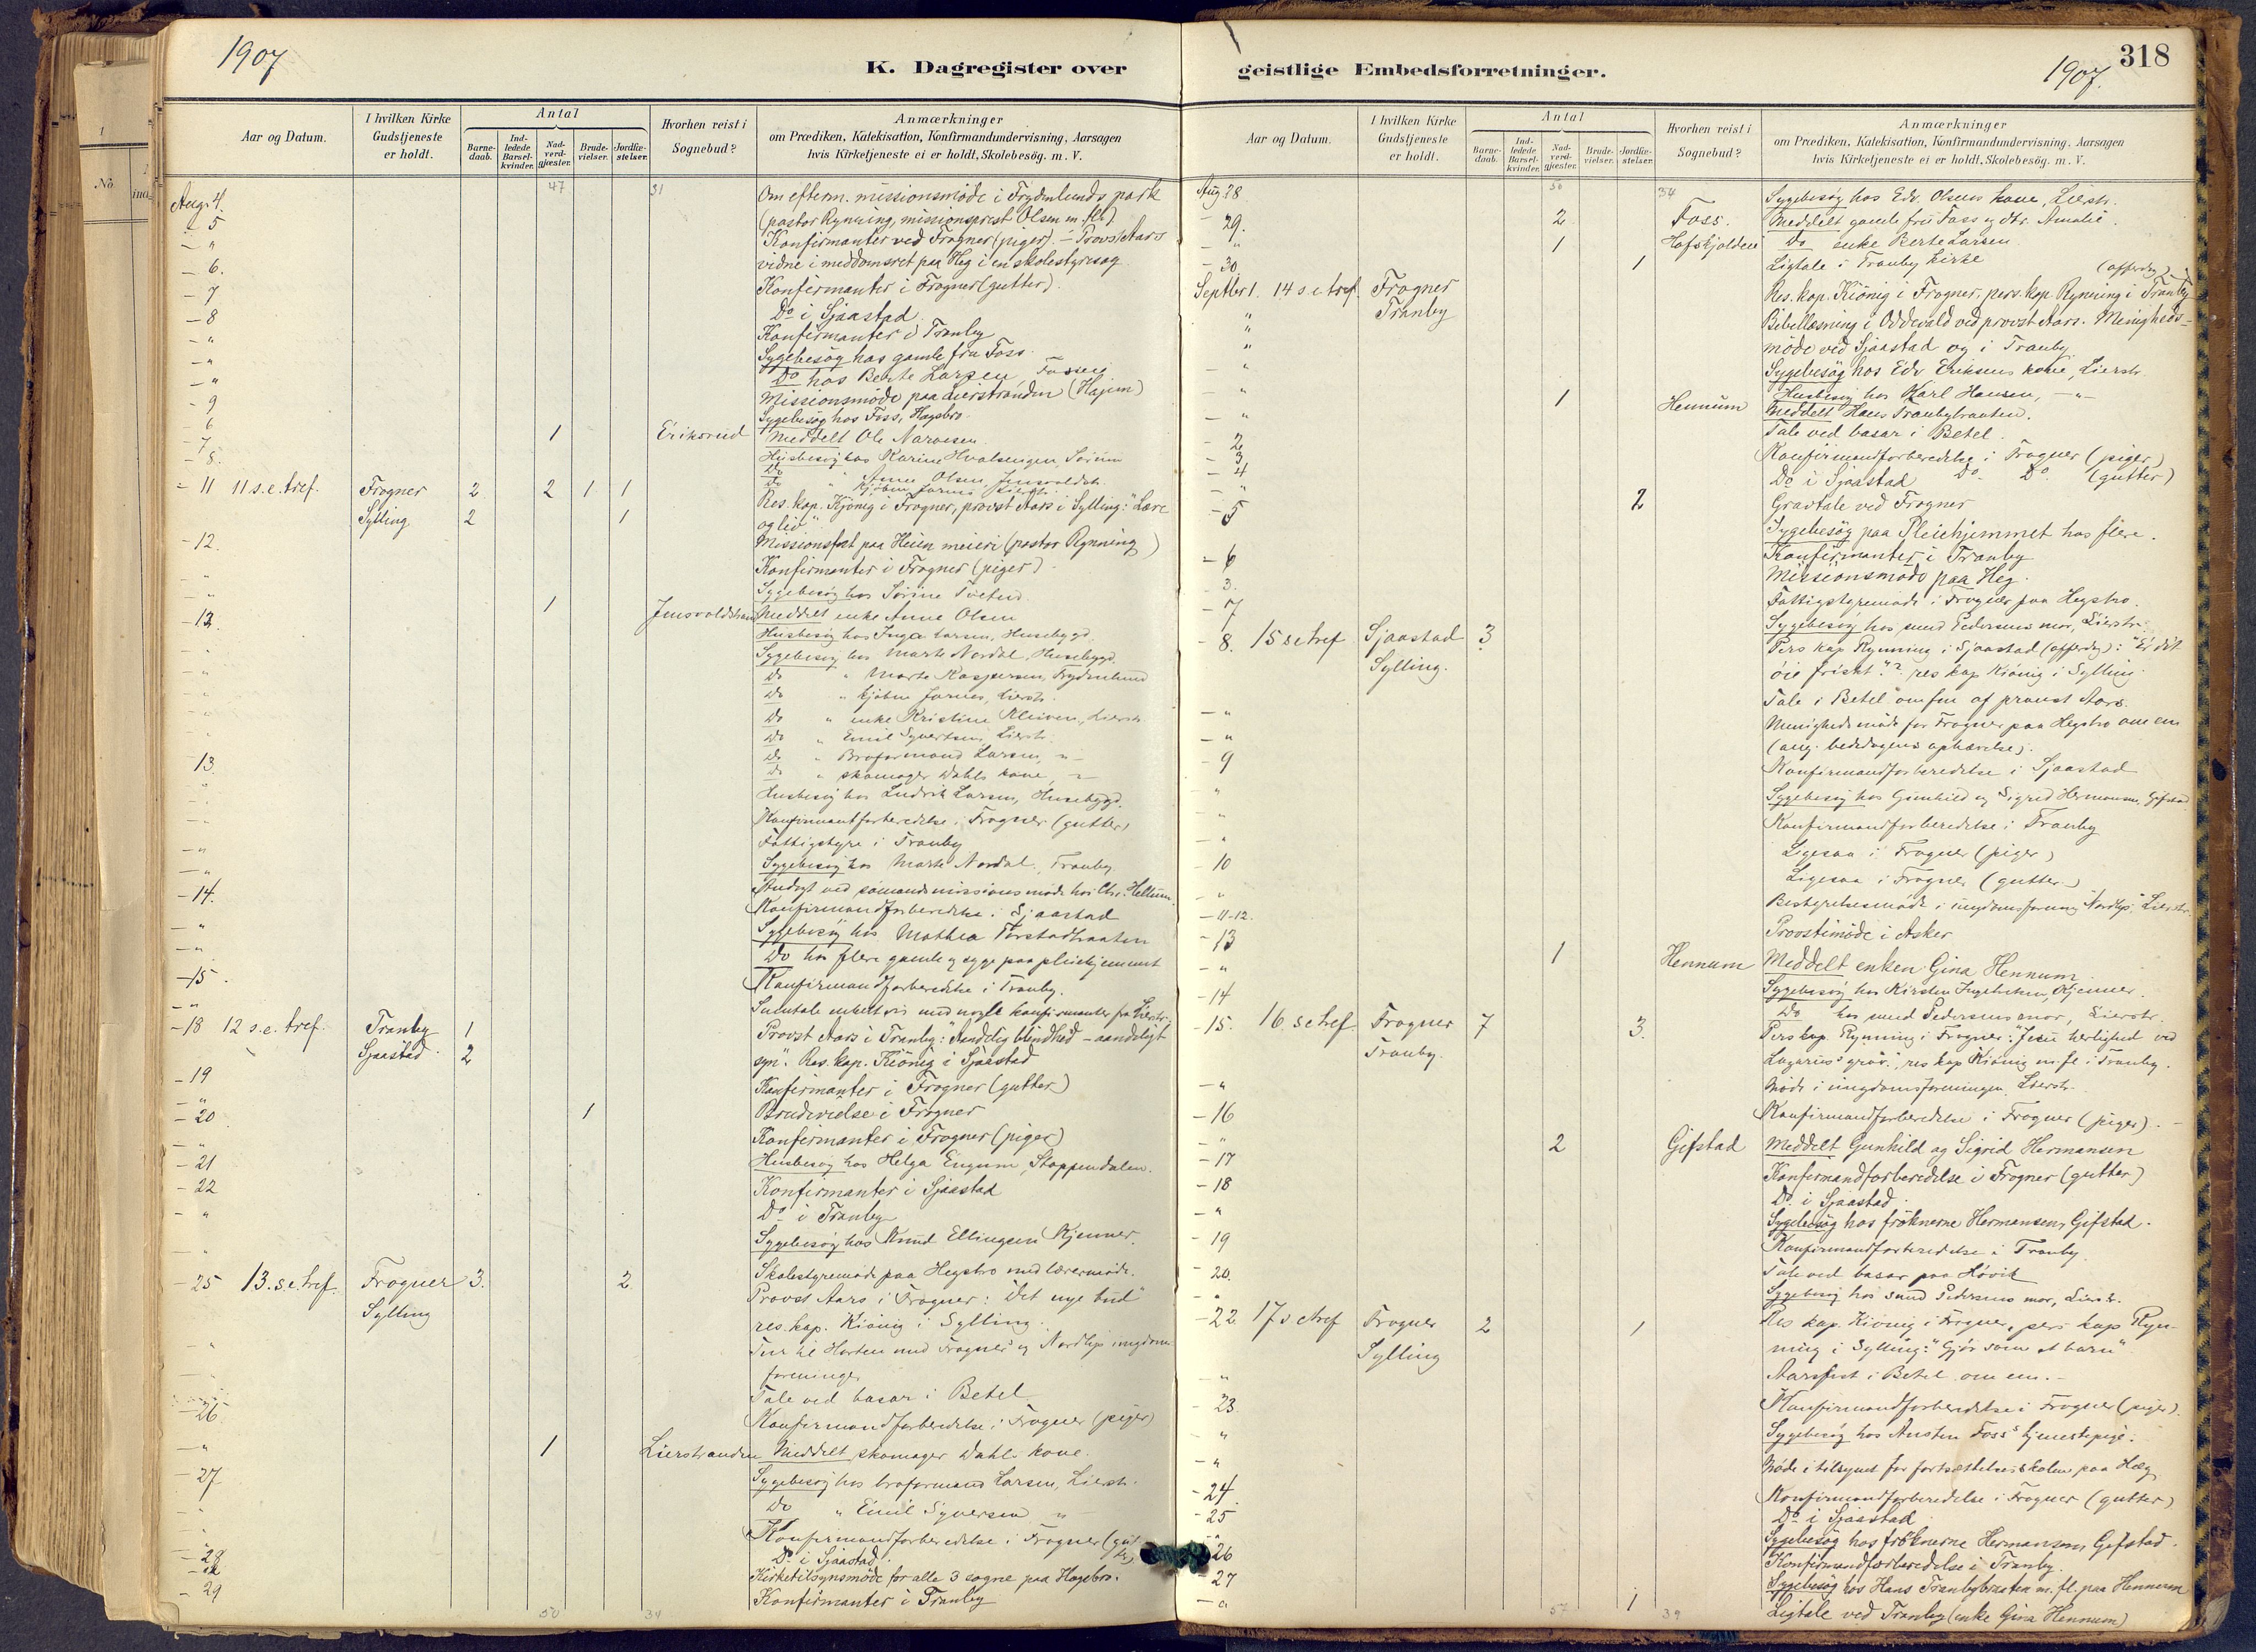 1907
K. Dagregister over
geistlige Embedsforretninger.
1907.
318
Aar og Datum.
I hvilken Kirke Gudstjeneste er holdt.
Antal
Barne-daab.
Ind-ledede Barsel-kvinder.
Nad-verd-gjæster.
Brude-vielser.
Jordfæ-stelser.
Hvorhen reist i Sognebud?
Anmærkninger
om Prædiken, Katekisation, Konfirmandundervisning, Aarsagen
hvis Kirketjeneste ei er holdt, Skolebesög. m. V.
47 31
Aug. 4. Om efterm. missionsmöde i Frydenlunds park
5 (pastor Rynning, missionsprest Olsen m. fl.)
" Konfirmanter ved Frogner (piger). – Provst Aars
6. vidne i meddomsret paa Heg i en skolestyresag.
7 Konfirmanter i Frogner (gutter).
8 Do i Sjaastad.
" Konfirmanter i Tranby
" Sygebesög hos gamle fru Foss.
" Do hos Berte Larsen Fossen
9 Missionsmöde paa Lierstranden (Hajem)
6 Sygebesög hos Foss, Hagebro.
7 1 Eriksrud Meddelt Ole Narvesen.
8. Husbesög hos Karine Hvalsengen, Sørum
Do " Anne Olsen, Jensvoldstr.
Do " Kjøbm Jarnes Lierstr.
11 11 s.e. tref. Frogner 2 2 1 1 Res. kap. Kjönig i Frogner, provst Aars i Sylling: "Lære
Sylling 2 1 og liv".
12. Missionsfest paa Heien meieri (pastor Rynning)
" Konfirmanter i Frogner (piger).
" Sygebesög hos Sørine Tveten
13. 1 Jensvoldstrand Meddelt enke Anne Olsen
Husbesög hos Inga Larsen, Husebygd.
" Sygebesög hos Marte Nordal, Husebygd.
" Do " Marte Kaspersen, Frydenlund
" Do " kjøbm Jarnes, Lierstr.
" Do " enke Kristine Kleiven, Lierstr.
" Do " Emil Syvertsen, Lierstr.
13. Do " Broformand Larsen, "
" Do " skomager Dahls kone, "
" Husbesög hos Ludvik Larsen, Husebygd.
" Konfirmantforberedelse i Frogner (gutter)
" Fattigstyre i Tranby
" Sygebesög hos Marte Nordal, Tranby
14. Andagt ved sømandsmissionsmöde hos Chr. Hellum.
Konfirmandforberedelse i Sjaastad
" Sygebesög hos Mathea Tørstadbraaten
" Do hos flere gamle og syge paa pleiehjemmet
15. Konfirmandforberedelse i Tranby.
" Samtale enkeltvis med nogle konfirmanter fra Lierstr.
18 12 s.e. tref. Tranby 1 Provst Aars i Tranby: "Aandelig blindhed – aandeligt
Sjaastad 2 syn". Res. kap. Kiönig i Sjaastad
19 Konfirmanter i Frogner (gutter)
20 1 Brudevielse i Frogner
" Konfirmanter i Frogner (piger)
21 Husbesög hos Helga Engum, Stoppendalen.
22 Konfirmanter i Sjaastad
" Do i Tranby
" Sygebesög hos Knud Ellingsen Kjenner.
Skolestyremöde paa Hegsbro med lærermöde.
25 13. s.e. tref. Frogner 3. 2 Provst Aars i Frogner: "Det nye bud"
Sylling res. kap. Kiönig i Sylling.
" Tur til Horten med Frogner og Nordlys ungdoms-
foreninger
Tale ved basar i Betel
26. Konfirmandforberedelse i Frogner (piger)
" 1 Lierstranden Meddelt skomager Dahls kone.
27 Sygebesög hos broformand Larsen, Lierstr.
" Do " Emil Syversen "
" Konfirmandforberedelse i Frogner (gut
28 Do i Sjaastad. ter)
" Kirketilsynsmöde for alle 3 sogne paa Hagebro.
29 Konfirmanter i Tranby
50 34
Aar og Datum.
I hvilken Kirke Gudstjeneste er holdt.
Antal
Barne-daab.
Ind-ledede Barsel-kvinder.
Nad-verd-gjæster.
Brude-vielser.
Jordfæ-stelser.
Hvorhen reist i Sognebud?
Anmærkninger
om Prædiken, Katekisation, Konfirmandundervisning, Aarsagen
hvis Kirketjeneste ei er holdt, Skolebesög. m. V.
50 34
Aug. 28. Sygebesög hos Edv. Olsens kone, Lierstr.
29. 2 Foss. Meddelt gamle fru Foss og dtr. Amalie.
" 1 Hofskjolden Do enke Berte Larsen.
30. 1 Ligtale i Tranby kirke
Septbr 1. 14 s e tref. Frogner Res. kap. Kiönig i Frogner, pers. kap Rynning i Tranby (offerdag)
" Tranby Bibellæsning i Oddevald ved provst Aars. Menigheds-
" möde ved Sjaastad og i Tranby
" Sygebesög hos Edv Eriksens kone, Lierstr.
" Husbesög hos Karl Hansen, – " –
" 1 Hennum Meddelt Hans Tranbybraaten.
" Tale ved basar i Betel.
2 Konfirmandforberedelse i Frogner (piger)
3 Do i Sjaastad Do. Do. (gutter)
4 2 Gravtale ved Frogner
5 Sygebesög paa Pleiehjemmet hos flere.
Konfirmanter i Tranby
6 Missionsmöde paa Heg.
3. Fattigstyremöde i Frogner paa Hegsbro.
7 Sygebesög hos smed Pedersens mor, Lierstr.
8. 15 s e tref Sjaastad 3 Pers kap Rynning i Sjaastad (offerdag): "Er dit
Sylling. öie friskt"? res kap Kiönig i Sylling.
" Tale i Betel omfm af provst Aars.
" Menighedsmöde for Frogner paa Hegsbro om em
(ang. bededagens ophævelse).
9 Konfirmandforberedelse i Sjaastad
" Sygebesög hos Gunhild og Sigrid Hermansen, Gifstad
" Konfirmandforberedelse i Tranby
" Ligesaa i Frogner (piger)
10 Ligesaa i Frogner (gutter)
" Bestyrelsesmöde i ungdomsforening "Nordlys", Lierstr.
11-12. Provstimöde i Asker
13 1 Hennum Meddelt enken Gina Hennum
" Sygebesög hos Kirsten Ingebretsen, Kjenner.
14 Do hos smed Pedersens mor, Lierstr.
15. 16. s e tref. Frogner 7 3. Pers kap. Rynning i Frogner: "Jesu herlighed ved
Tranby. Lazarus's grav", res kap Kiönig m. fl. i Tranby.
" Möde i ungdomsforeningen, Lierstr.
16 Konfirmandforberedelse i Frogner (piger).
" 2 Gifstad Meddelt Gunhild og Sigrid Hermansen
17 Konfirmandforberedelse i Frogner (gutter)
18 Do i Sjaastad.
" Sygebesög hos fröknerne Hermansen, Gifstad.
19 Konfirmandforberedelse i Tranby.
20. Tale ved basar paa Høvik
" Sygebesög hos smed Pedersens mor, Lierstr.
22 17 s e tref Frogner 2 1 Res kap. Kiönig i Frogner, pers kap Ryn-
Sylling ning i Sylling: "Gjör som et barn".
" Aarsfest i Betel om em.
23. Konfirmandforberedelse i Frogner (piger).
" Sygebesög hos Austen Foss's tjenestepige.
" Möde i tilsynet for fortsættelsesskolen paa Heg
24. Konfirmandforberedelse i Frogner (gutter)
25 Do i Sjaastad
" Sygebesög hos fröknerne Hermansen, Gifstad.
26 Konfirmandforberedelse i Tranby.
27 Sygebesög hos Hans Tranbybraaten m. fl. paa Hennum
" 1 Ligtale ved Tranby (enke Gina Hennum)
57 39